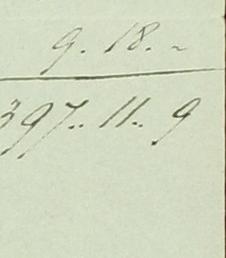 9. 18. ~
397.. 11.. 9